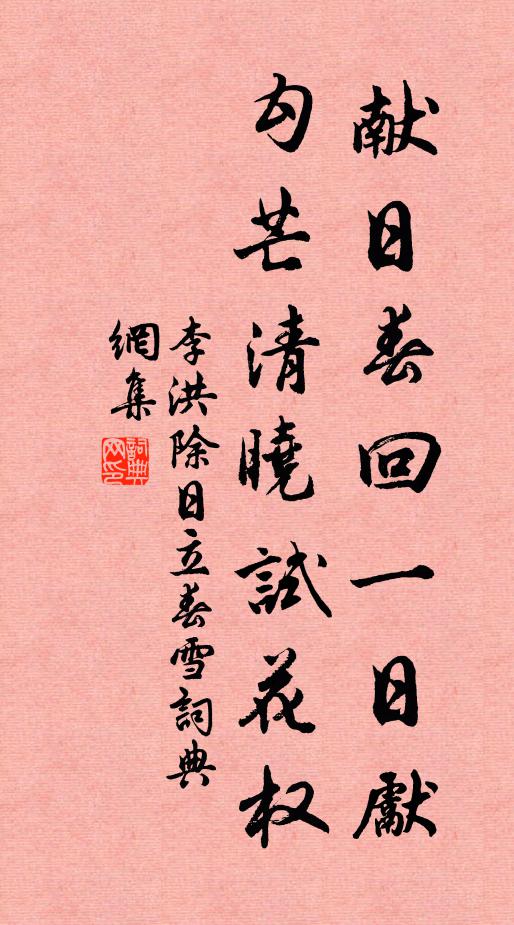 献日春回一日獻
勾芒清曉試花权
李洪除日立春雪詞典
網集
詞典網印